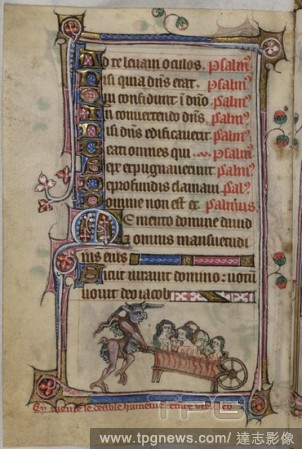 Ad te levavi oculos. psalm⁹
Nisi quia dn̄s erat. psalm⁹
Qui confidunt ī dn̄o. psalm⁹
In convertendo dn̄s. psalm⁹
Nisi dn̄s edificaverit. psalm⁹
Beati omnes qui psalm⁹
Sepe expugnaverunt psalm⁹
De profundis clamavi. psal⁹
Domine non est ex psalmus.
Memento domine david
et omnis mansuetudi
nis eius
Sicut iuravit domino: votū
vovit deo iacob
TPG
www.tpgnews.com/ 達志影像